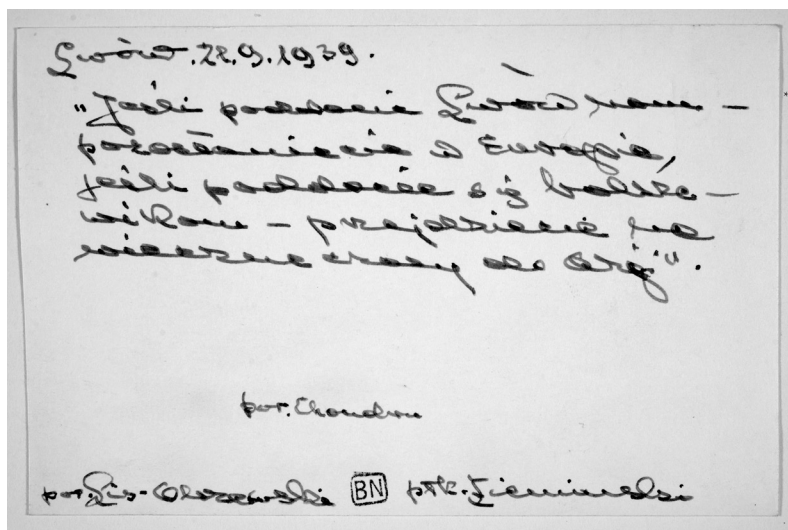 Lwów. 22.9.1939.
"Jeśli poddacie Lwów nam –
pozostaniecie w Europie,
jeśli poddacie się bolsze-
wikom – przejdziecie na
wieczne czasy do Azji".
por.
por. Lis-Olszewski BN płk. Ziemiński